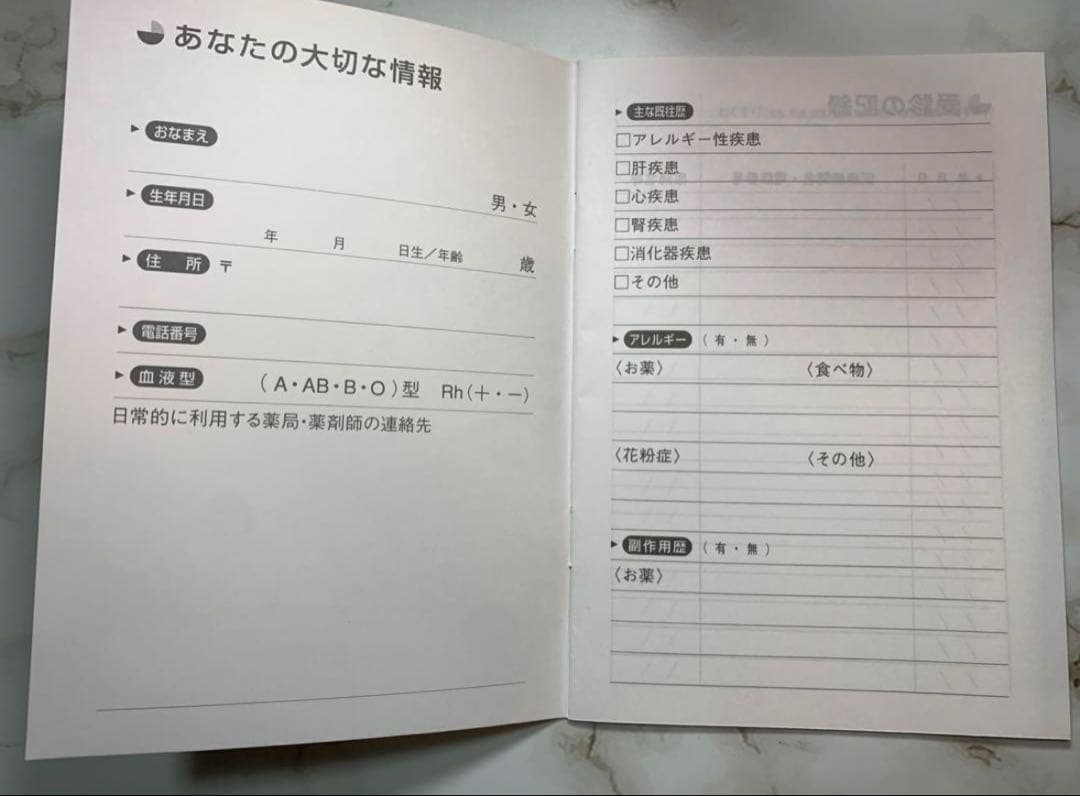 あなたの大切な情報
おなまえ
男・女
生年月日
年 月 日生／年齢 歳
住 所 〒
電話番号
血液型 （A・AB・B・O）型 Rh（＋・－）
日常的に利用する薬局・薬剤師の連絡先
主な既往歴
□アレルギー性疾患
□肝疾患
□心疾患
□腎疾患
□消化器疾患
□その他
アレルギー （有・無）
〈お薬〉 〈食べ物〉
〈花粉症〉 〈その他〉
副作用歴 （有・無）
〈お薬〉